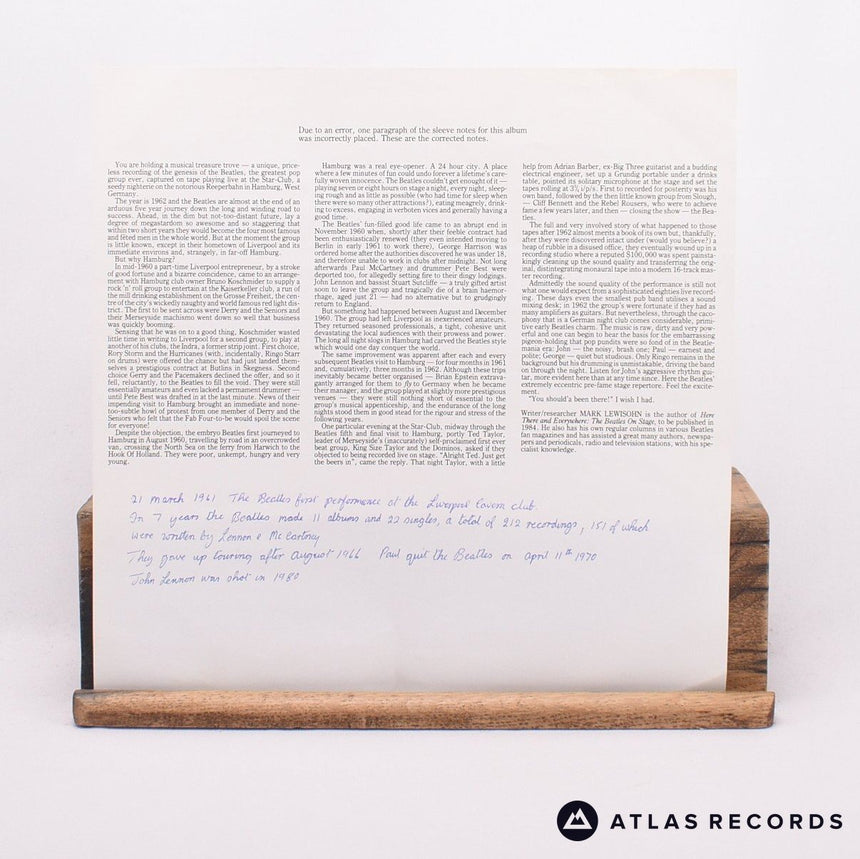 Due to an error, one paragraph of the sleeve notes for this album
was incorrectly placed. These are the corrected notes.
You are holding a musical treasure trove — a unique, price-
less recording of the genesis of the Beatles, the greatest pop
group ever, captured on tape playing live at the Star-Club, a
seedy nighterie on the notorious Reeperbahn in Hamburg, West
Germany.
The year is 1962 and the Beatles are almost at the end of an
arduous five year journey down the long and winding road to
success. Ahead, in the dim but not-too-distant future, lay a
degree of megastardom so awesome and so staggering that
within two short years they would become the four most famous
and fêted men in the whole world. But at the moment the group
is little known, except in their hometown of Liverpool and its
immediate environs and, strangely, in far-off Hamburg.
But why Hamburg?
In mid-1960 a part-time Liverpool entrepreneur, by a stroke
of good fortune and a bizarre coincidence, came to an arrange-
ment with Hamburg club owner Bruno Koschmider to supply a
rock 'n' roll group to entertain at the Kaiserkeller club, a run of
the mill drinking establishment on the Grosse Freiheit, the cen-
tre of the city's wickedly naughty and world famous red light dis-
trict. The first to be sent across were Derry and the Seniors and
their Merseyside machismo went down so well that business
was quickly booming.
Sensing that he was on to a good thing, Koschmider wasted
little time in writing to Liverpool for a second group, to play at
another of his clubs, the Indra, a former strip joint. First choice,
Rory Storm and the Hurricanes (with, incidentally, Ringo Starr
on drums) were offered the chance but had just landed them-
selves a prestigious contract at Butlins in Skegness. Second
choice Gerry and the Pacemakers declined the offer, and so it
fell, reluctantly, to the Beatles to fill the void. They were still
essentially amateurs and even lacked a permanent drummer —
until Pete Best was drafted in at the last minute. News of their
impending visit to Hamburg brought an immediate and none-
too-subtle howl of protest from one member of Derry and the
Seniors who felt that the Fab Four-to-be would spoil the scene
for everyone!
Despite the objection, the embryo Beatles first journeyed to
Hamburg in August 1960, travelling by road in an overcrowded
van, crossing the North Sea on the ferry from Harwich to the
Hook Of Holland. They were poor, unkempt, hungry and very
young.
Hamburg was a real eye-opener. A 24 hour city. A place
where a few minutes of fun could undo forever a lifetime's care-
fully woven innocence. The Beatles couldn't get enough of it —
playing seven or eight hours on stage a night, every night, sleep-
ing rough and as little as possible (who had time for sleep when
there were so many other attractions?), eating meagrely, drink-
ing to excess, engaging in verboten vices and generally having a
good time.
The Beatles' fun-filled good life came to an abrupt end in
November 1960 when, shortly after their feeble contract had
been enthusiastically renewed (they even intended moving to
Berlin in early 1961 to work there), George Harrison was
ordered home after the authorities discovered he was under 18,
and therefore unable to work in clubs after midnight. Not long
afterwards Paul McCartney and drummer Pete Best were
deported too, for allegedly setting fire to their dingy lodgings.
John Lennon and bassist Stuart Sutcliffe — a truly gifted artist
soon to leave the group and tragically die of a brain haemor-
rhage, aged just 21 — had no alternative but to grudgingly
return to England.
But something had happened between August and December
1960. The group had left Liverpool as inexperienced amateurs.
They returned seasoned professionals, a tight, cohesive unit
devastating the local audiences with their prowess and power.
The long all night slogs in Hamburg had carved the Beatles style
which would one day conquer the world.
The same improvement was apparent after each and every
subsequent Beatles visit to Hamburg — for four months in 1961
and, cumulatively, three months in 1962. Although these trips
inevitably became better organised — Brian Epstein extrava-
gantly arranged for them to fly to Germany when he became
their manager, and the group played at slightly more prestigious
venues — they were still nothing short of essential to the
group's musical apprenticeship, and the endurance of the long
nights stood them in good stead for the rigour and stress of the
following years.
One particular evening at the Star-Club, midway through the
Beatles fifth and final visit to Hamburg, portly Ted Taylor,
leader of Merseyside's (inaccurately) self-proclaimed first ever
beat group, King Size Taylor and the Dominos, asked if they
objected to being recorded live on stage. "Alright Ted. Just get
the beers in", came the reply. That night Taylor, with a little
help from Adrian Barber, ex-Big Three guitarist and a budding
electrical engineer, set up a Grundig portable under a drinks
table, placed its solitary microphone at the stage and set the
tapes rolling at 3¾ i/p/s. First to recorded for posterity was his
own band, followed by the then little known group from Slough,
— Cliff Bennett and the Rebel Rousers, who were to achieve
fame a few years later, and then — closing the show — the Bea-
tles.
The full and very involved story of what happened to those
tapes after 1962 almost merits a book of its own but, thankfully,
after they were discovered intact under (would you believe?) a
heap of rubble in a disused office, they eventually wound up in a
recording studio where a reputed $100,000 was spent painsta-
kingly cleaning up the sound quality and transferring the orig-
inal, distintegrating monaural tape into a modern 16-track mas-
ter recording.
Admittedly the sound quality of the performance is still not
what one would expect from a sophisticated eighties live record-
ing. These days even the smallest pub band utilises a sound
mixing desk; in 1962 the group's were fortunate if they had as
many amplifiers as guitars. But nevertheless, through the caco-
phony that is a German night club comes considerable, primi-
tive early Beatles charm. The music is raw, dirty and very pow-
erful and one can begin to hear the basis for the embarrassing
pigeon-holding that pop pundits were so fond of in the Beatle-
mania era: John — the noisy, brash one; Paul — earnest and
polite; George — quiet but studious. Only Ringo remains in the
background but his drumming is unmistakable, driving the band
on through the night. Listen for John's aggressive rhythm gui-
tar, more evident here than at any time since. Here the Beatles'
extremely eccentric pre-fame stage repertoire. Feel the excite-
ment.
"You should'a been there!" I wish I had.
Writer/researcher MARK LEWISOHN is the author of Here
There and Everywhere: The Beatles On Stage, to be published in
1984. He also has his own regular columns in various Beatles
fan magazines and has assisted a great many authors, newspa-
pers and periodicals, radio and television stations, with his spe-
cialist knowledge.
21 march 1961 The Beatles first performance at the Liverpool Cavern club.
In 7 years the Beatles made 11 albums and 22 singles, a total of 212 recordings, 151 of which
were written by Lennon & McCartney
They gave up touring after August 1966 Paul quit the Beatles on April 11th 1970
John Lennon was shot in 1980
ATLAS RECORDS